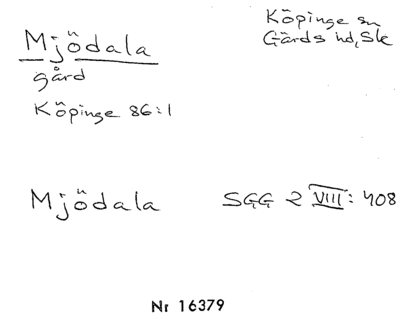 Mjödala
Köpinge sn
Gärds hd, Sk
gård
Köpinge 86:1
Mjödala
SGG 2 VIII: 408
Nr 16379